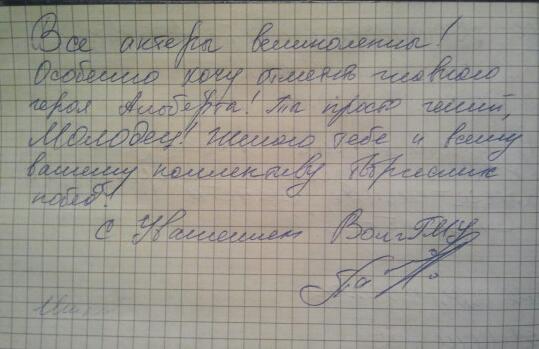 Все актеры великолепны!
Особенно хочу отметить главного
героя Альберта! Ты просто гений,
Молодец! Желаю тебе и всему
вашему коллективу творческих
побед!
С Уважением ВолгГМУ